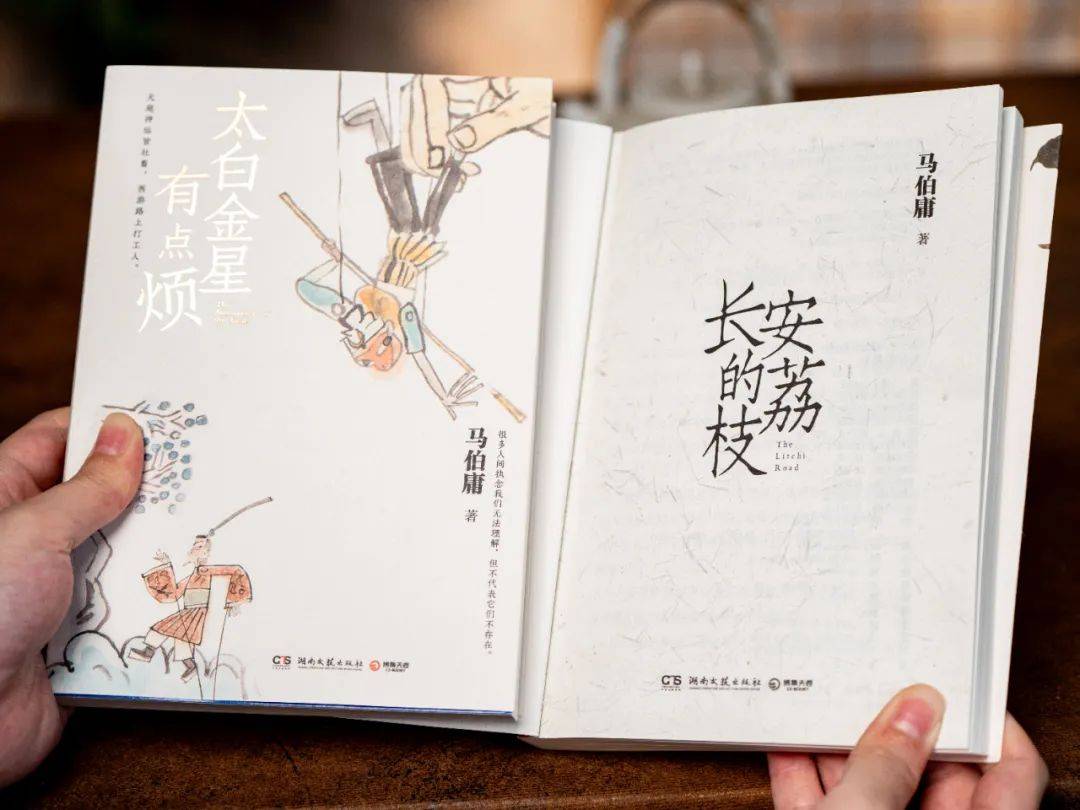 太白金星
有点烦
天庭神仙皆社畜，西游路上打工人。
马伯庸 著
很多人间执念我们无法理解，但不代表它们不存在。
湖南文艺出版社
博集天卷
CS-BOOKY
马伯庸 著
长安
的荔
枝
The
Litchi
Road
湖南文艺出版社
博集天卷
CS-BOOKY